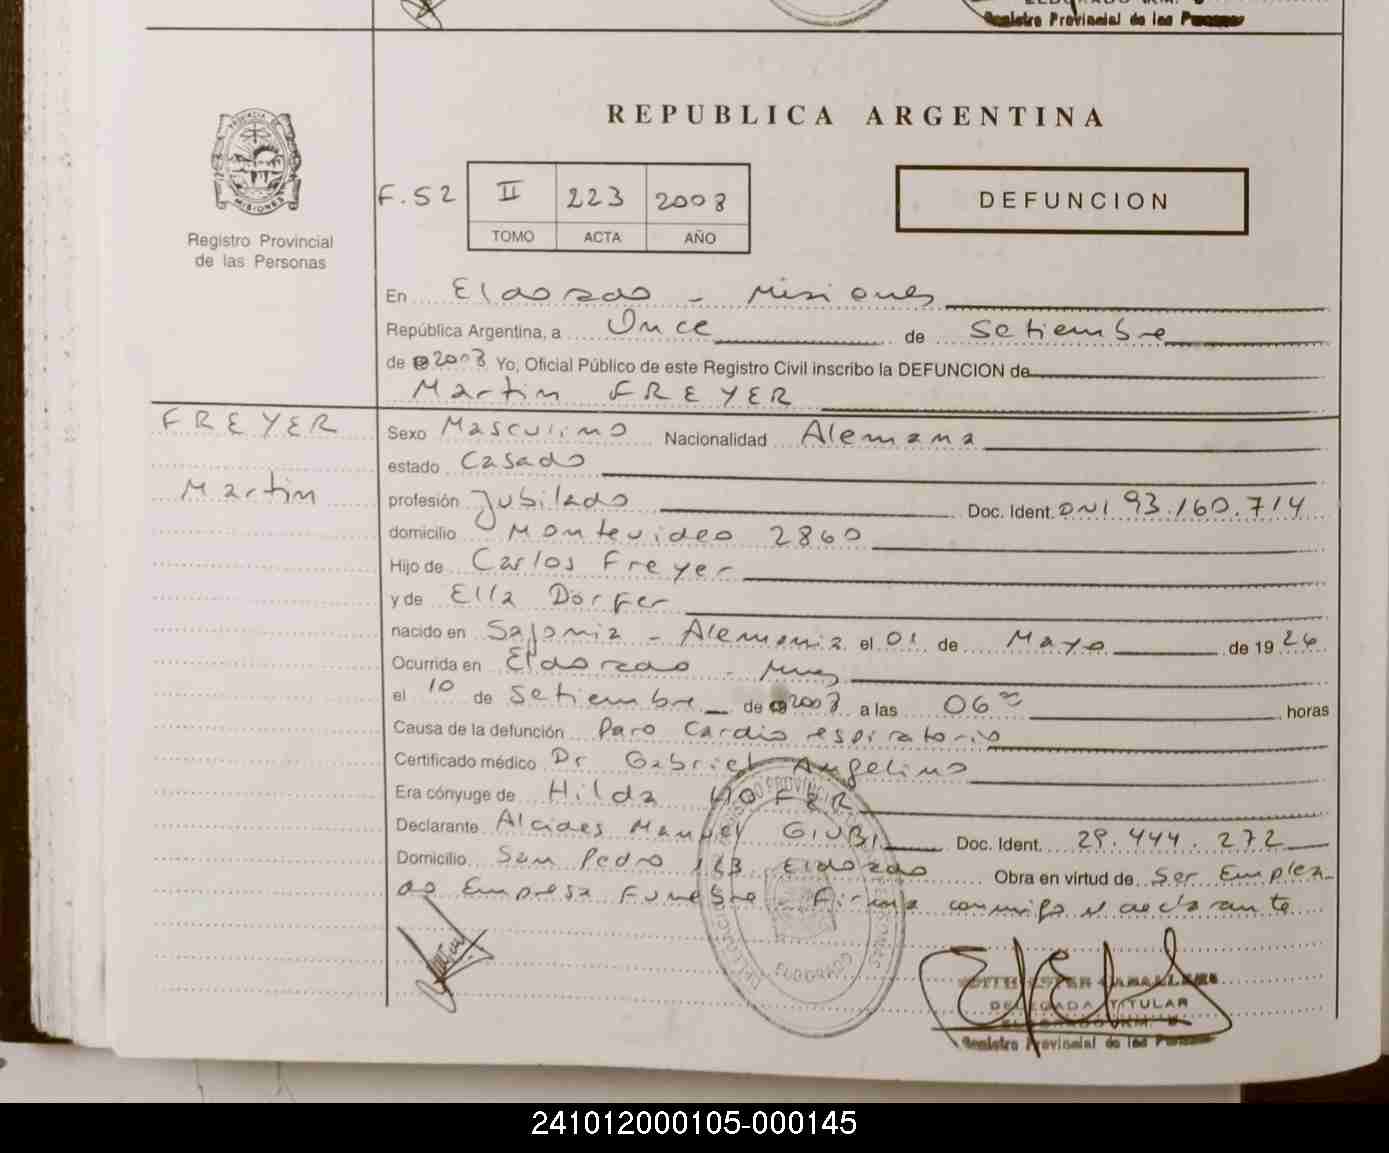 Registro Provincial de las Personas
REPUBLICA ARGENTINA
PROVINCIA DE
MISIONES
Registro Provincial
de las Personas
F. 52 II 223 2003
TOMO ACTA AÑO
DEFUNCION
En Eldorado - Misiones
República Argentina, a Once de Setiembre
de 2003 Yo, Oficial Público de este Registro Civil inscribo la DEFUNCION de
Martin FREYER
FREYER
Martin
Sexo Masculino Nacionalidad Alemana
estado Casado
profesión Jubilado Doc. Ident. DNI 93.160.714
domicilio Montevideo 2860
Hijo de Carlos Freyer
y de Ella Dorfer
nacido en Sajonia - Alemania el 01 de Mayo de 1926
Ocurrida en Eldorado - Mnes
el 10 de Setiembre de 2003 a las 06 horas
Causa de la defunción Paro Cardio respiratorio
Certificado médico Dr Gabriel Angelino
Era cónyuge de Hilda HOFER
Declarante Alcides Manuel GIUBI Doc. Ident. 29.444.272
Domicilio San Pedro 163 Eldorado Obra en virtud de Ser Emplea-
do Empresa Funebre - Firma conmigo el declarante
ELDORADO
DELEGADA TITULAR
Registro Provincial de las Personas
241012000105-000145